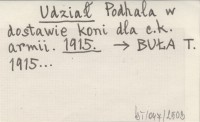 Udział Podhala w
dostawie koni dla c.k.
armii. 1915. → BUŁA T.
1915...